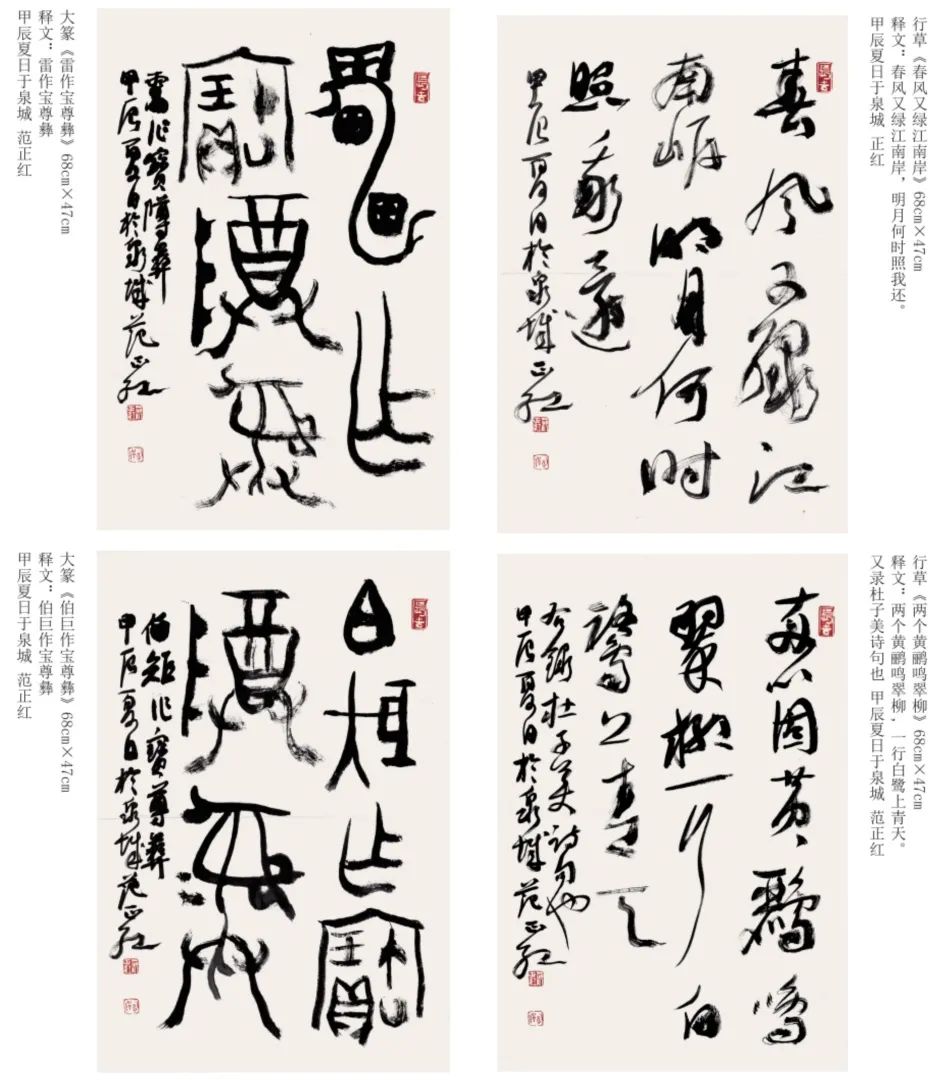 大篆《雷作宝尊彝》68cm×47cm
释文：雷作宝尊彝
甲辰夏日于泉城 范正红
雷乍
寶尊彝
雷作寶障彝
甲辰夏日於泉城范正红
行草《春风又绿江南岸》68cm×47cm
释文：春风又绿江南岸，明月何时照我还。
甲辰夏日于泉城 正红
春风又綠江
南岸明月何时
照我還
甲辰夏日於泉城正红
大篆《伯巨作宝尊彝》68cm×47cm
释文：伯巨作宝尊彝
甲辰夏日于泉城 范正红
白矩乍寶
尊彝
伯矩作寶尊彝
甲辰夏日於泉城范正红
行草《两个黄鹂鸣翠柳》68cm×47cm
释文：两个黄鹂鸣翠柳，一行白鹭上青天。
又录杜子美诗句也 甲辰夏日于泉城 范正红
两箇黄鸝鳴
翠柳一行白
鹭上青天
又錄杜子美诗句也
甲辰夏日於泉城范正红